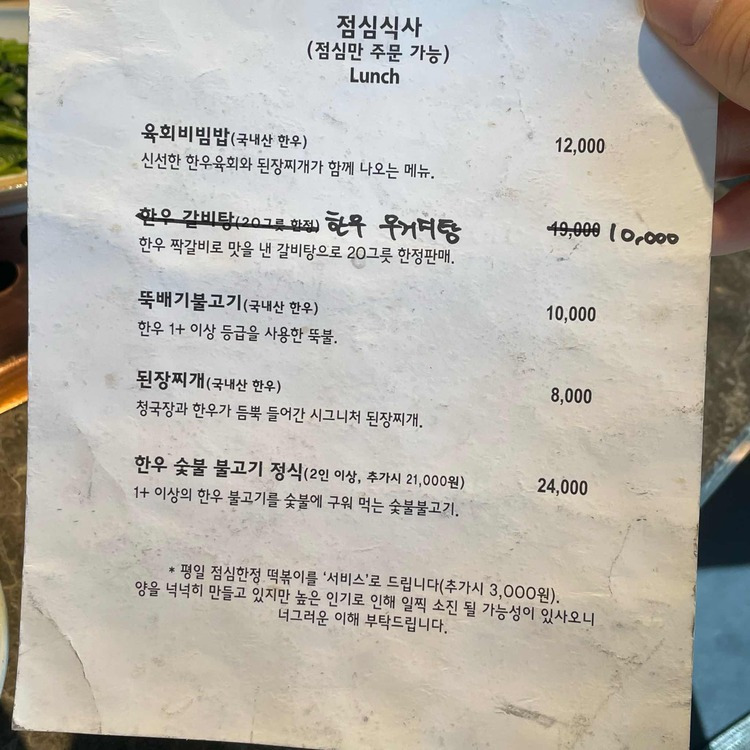 점심식사
(점심만 주문 가능)
Lunch
육회비빔밥(국내산 한우) 12,000
신선한 한우육회와 된장찌개가 함께 나오는 메뉴.
한우 갈비탕(20그릇 한정) 한우 우거지탕 19,000 10,000
한우 짝갈비로 맛을 낸 갈비탕으로 20그릇 한정판매.
뚝배기불고기(국내산 한우) 10,000
한우 1+ 이상 등급을 사용한 뚝불.
된장찌개(국내산 한우) 8,000
청국장과 한우가 듬뿍 들어간 시그니처 된장찌개.
한우 숯불 불고기 정식(2인 이상, 추가시 21,000원) 24,000
1+ 이상의 한우 불고기를 숯불에 구워 먹는 숯불불고기.
* 평일 점심한정 떡볶이를 '서비스'로 드립니다(추가시 3,000원).
양을 넉넉히 만들고 있지만 높은 인기로 인해 일찍 소진 될 가능성이 있사오니
너그러운 이해 부탁드립니다.